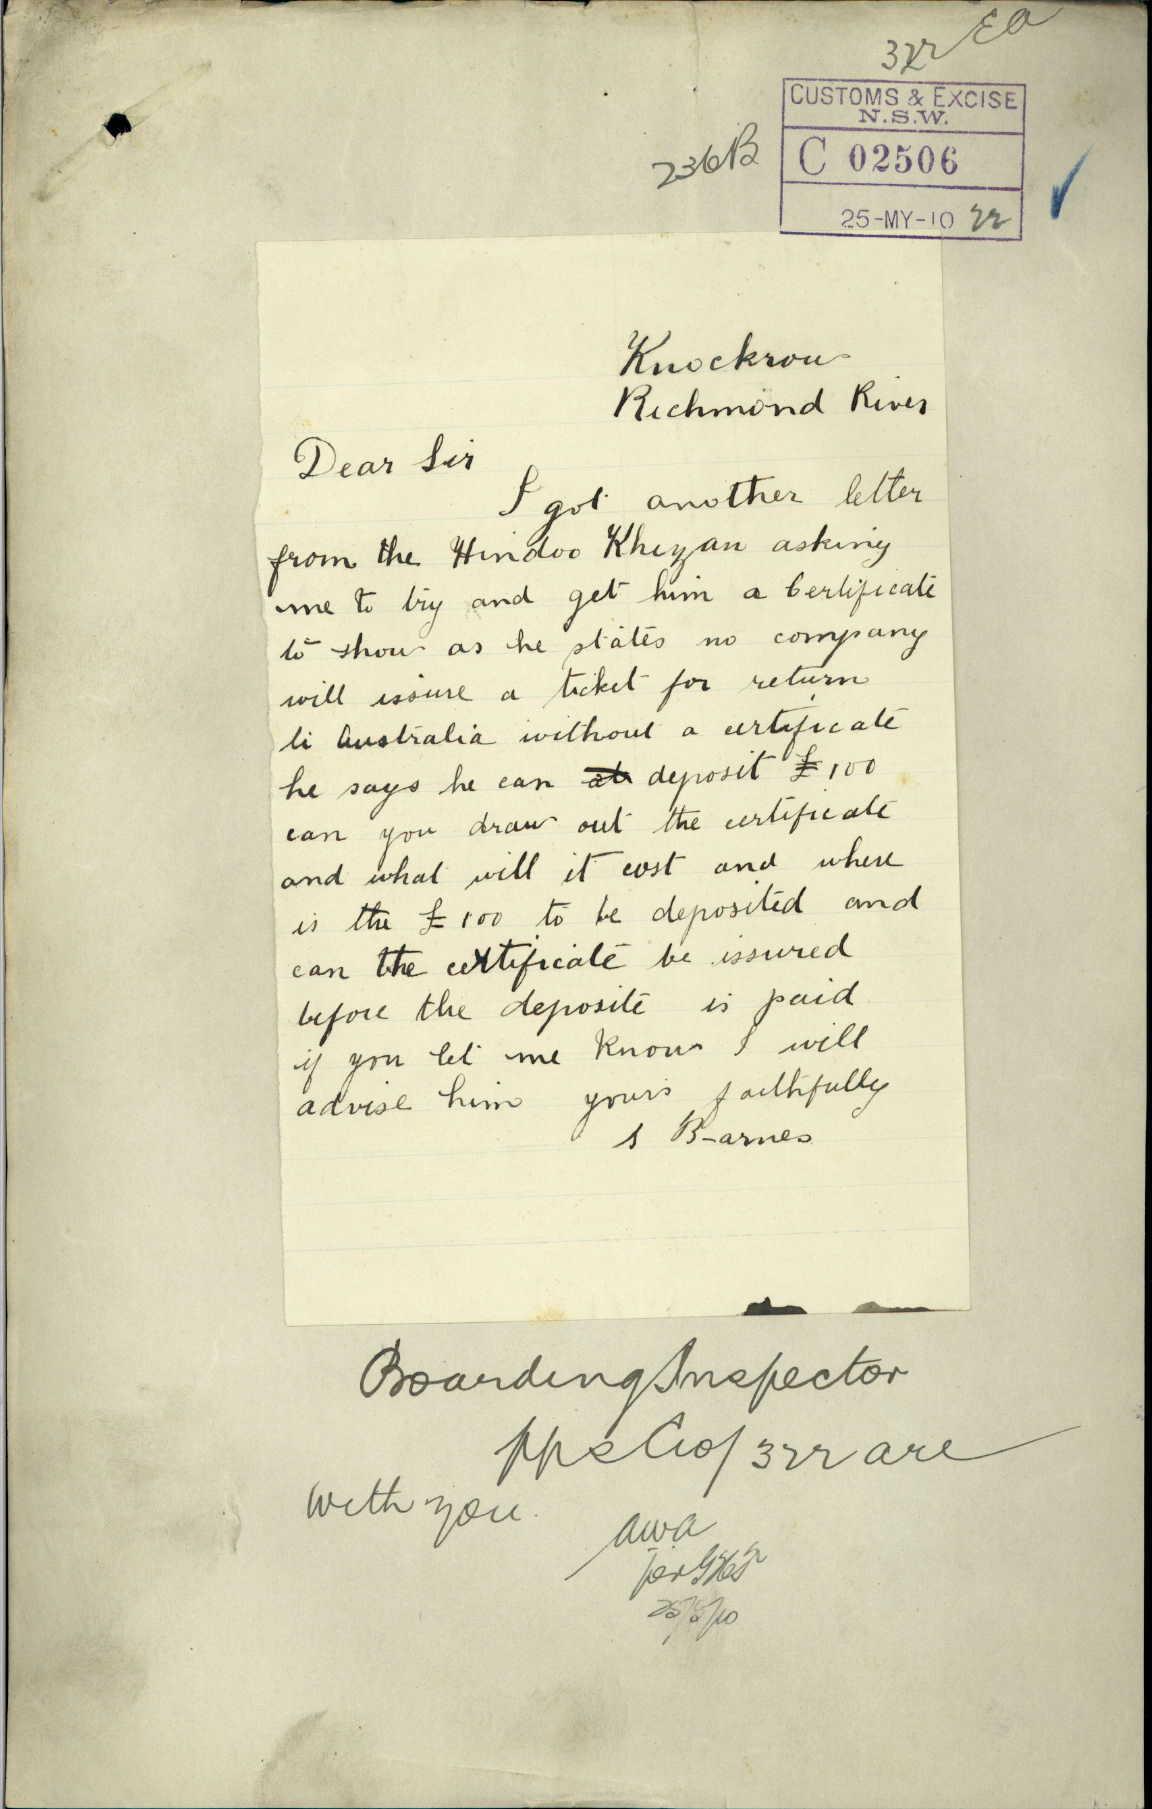 322 EA
CUSTOMS & EXCISE
N.S.W.
236B
C 02506
25-MY-10 22
Knockrow
Richmond River
Dear Sir
I got another letter
from the Hindoo Khyzan asking
me to try and get him a Certificate
to show as he states no company
will issure a ticket for return
to Australia without a certificate
he says he can at deposit £100
can you draw out the certificate
and what will it cost and where
is the £100 to be deposited and
can the certificate be issured
before the deposite is paid
if you let me know I will
advise him yours faithfully
S Barnes
Boarding Inspector
pps C10/322 are
with you.
AWA
per
25/5/10